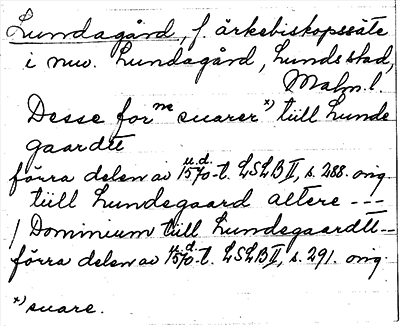 Lundagård, f. ärkebiskopssäte
i nuv. Lundagård, Lunds stad,
Malm. l.
Desse for^me suarer *) tiill Lunde
gaardtt
förra delen av u.d. 1570-t. LSLB II, s. 288. orig.
tiill Lundegaard altere ---
/ Dominium tiill Lundegaardtt --
förra delen av u.d. 1570-t. LSLB II, s. 291. orig.
*) suare.